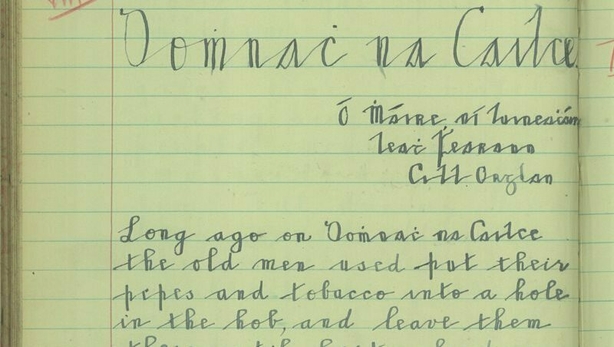 Doṁnaċ na Cailce
Ó Máire ní
Fearann
Cill Orglan
Long ago on Doṁnaċ na Cailce
the old men used put their
pepes and tobacco into a hole
in the hob, and leave them